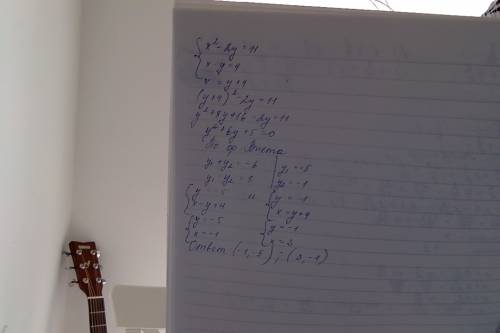 { x² - 2y = 11
{ x - y = 4
x = y + 4
(y+4)² - 2y = 11
y² + 8y + 16 - 2y = 11
y² + 6y + 5 = 0
По ф Виета
y₁ + y₂ = -6 | y₁ = -5
y₁ y₂ = 5 | y₂ = -1
{ y = -5 и { y = -1
{ x = y+4 { x = y+4
{ y = -5 { y = -1
{ x = -1 { x = 3
Ответ (-1, -5) ; (3, -1)